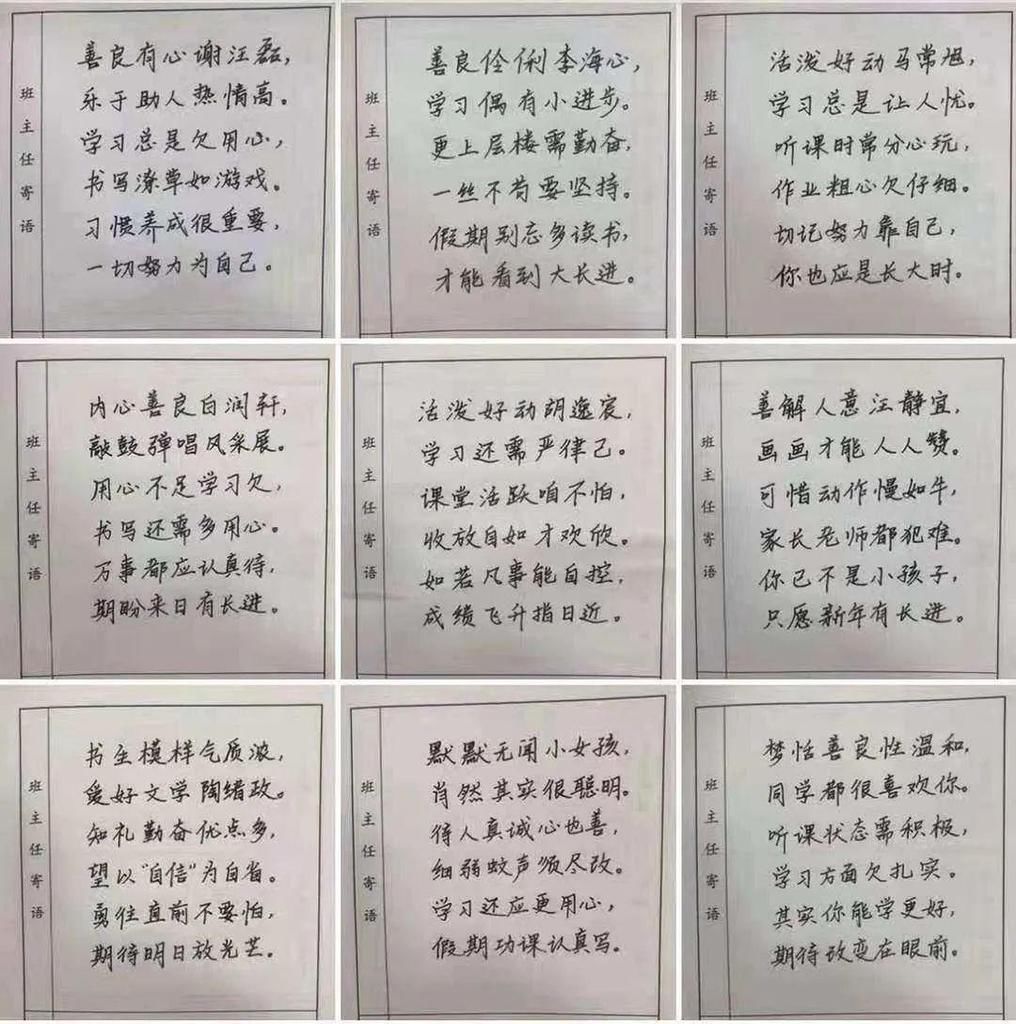 班主任寄语
善良有心谢汪磊,
乐于助人热情高。
学习总是欠用心,
书写潦草如游戏。
习惯养成很重要,
一切努力为自己。
班主任寄语
善良伶俐李海心,
学习偶有小进步。
更上层楼需勤奋,
一丝不苟要坚持。
假期别忘多读书,
才能看到大长进。
班主任寄语
活泼好动马常旭,
学习总是让人忧。
听课时常分心玩,
作业粗心欠仔细。
切记努力靠自己,
你也应是长大时。
班主任寄语
内心善良白润轩,
敲鼓弹唱风采展。
用心不足学习欠,
书写还需多用心。
万事都应认真待,
期盼来日有长进。
班主任寄语
活泼好动胡逸宸,
学习还需严律己。
课堂活跃咱不怕,
收放自如才欢欣。
如若凡事能自控,
成绩飞升指日近。
班主任寄语
善解人意汪静宜,
画画才能人人赞。
可惜动作慢如牛,
家长老师都犯难。
你已不是小孩子,
只愿新年有长进。
班主任寄语
书生模样气质浓,
爱好文学陶绪政。
知礼勤奋优点多,
望以“自信”为自省。
勇往直前不要怕,
期待明日放光芒。
班主任寄语
默默无闻小女孩,
肖然其实很聪明。
待人真诚心也善,
细弱蚊声须尽改。
学习还应更用心,
假期功课认真写。
班主任寄语
梦恬善良性温和,
同学都很喜欢你。
听课状态需积极,
学习方面欠扎实。
其实你能学更好,
期待改变在眼前。